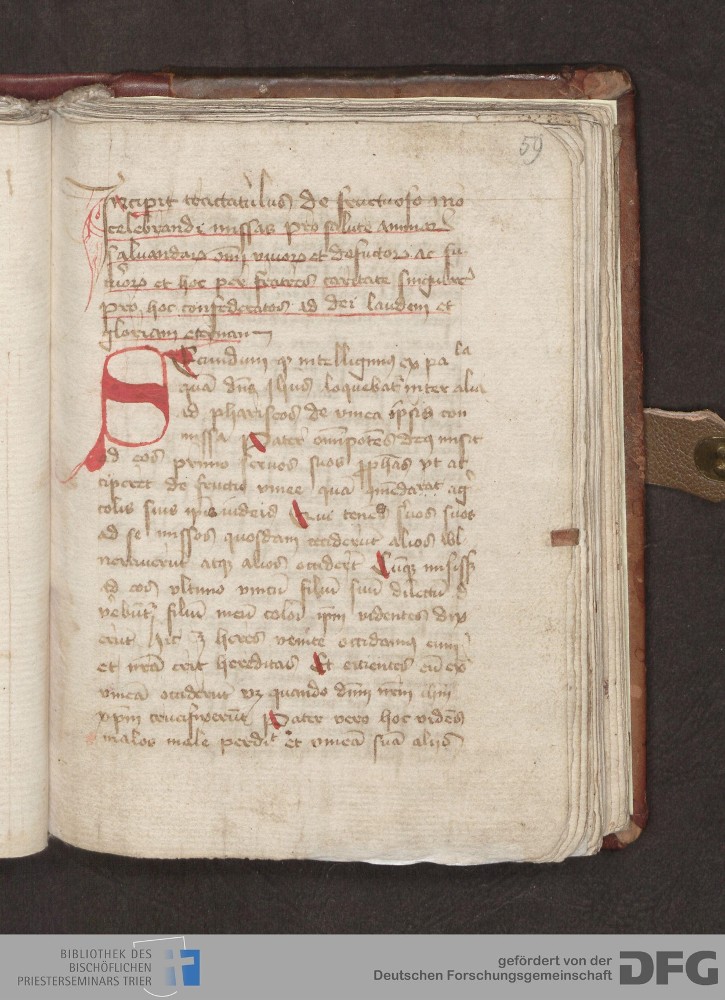 59
Incipit tractatulus de fructuoso mō
celebrandi missas pro salute animarū
saluandarū om̄i viuorū et defūctorū ac fu-
turorū et hoc per fratres caritate singulari
pro hoc confederatos ad dei laudem et
gloriam eternam
Secundum qd intelligimus ex pa la
quā dn̄s ihūs loquebatr inter alia
ad phariseos de vinea ipsis con
missa Pater om̄ipotēs deq misit
ad eos primo seruos suos prophās vt ac
ciperēt de fructu vinee quā cōmēdarat agri
colis suis iudeis Qui tenēdo suos
ad se missos quosdam ceciderūt alios vul
nerauerūt atq alios occiderūt Cūq misiss
ad eos vltimo vnicū filiū suū dilectū
verebūtr filiū meū coloni ipm̄ videntes dix
erūt hic est heres venite occidamus eum
et nr̄a erit hereditas Et eicientes eū ex
vineā occiderūt vz quando dn̄m nr̄m ihm̄
xpm̄ crucifixerūt Pater vero hoc vidēs
malos male perdit et vineā suā aliis
BIBLIOTHEK DES
BISCHÖFLICHEN
PRIESTERSEMINARS TRIER
gefördert von der
Deutschen Forschungsgemeinschaft
DFG